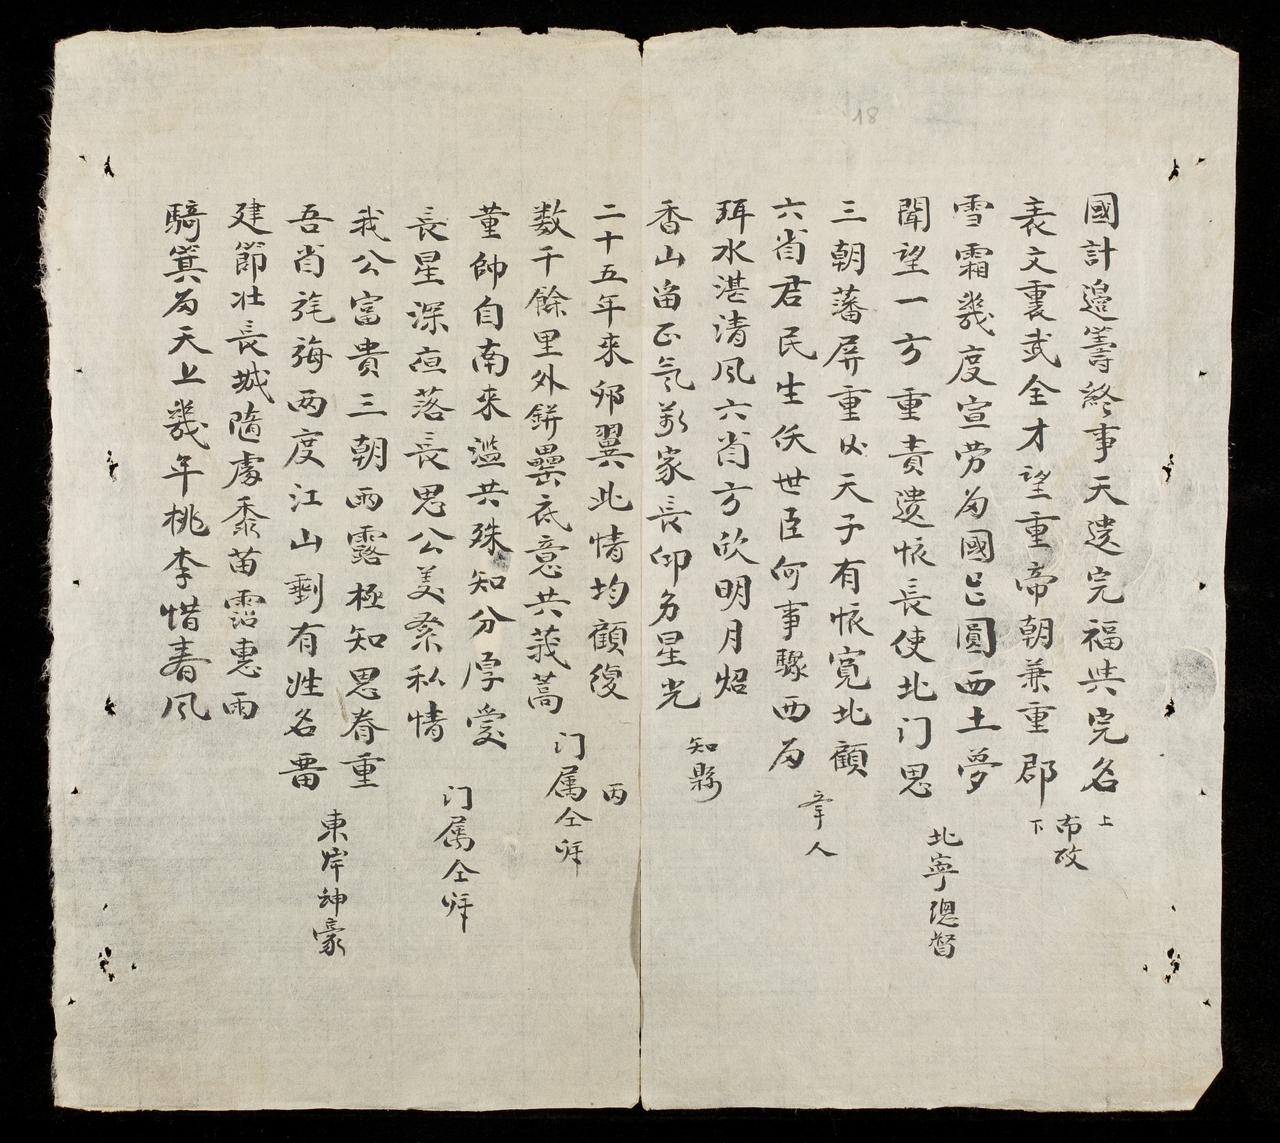 18
國計邉籌終事天遺完福與完名
上
布政
表文裏武全才望重帝朝兼重郡
下
雪霜幾度宣劳为國已圓西土夢
聞望一方重責遗恨長使北门思
北寧總督
三朝藩屏重以天子有恨寛北顧
六省君民生佚世臣何事驟西为
辛人
珥水湛清风六省方欣明月炤
香山畄正氣萬家長仰夛星光
知縣
二十五年來卵翼此情均顧復
丙
数千餘里外缾罍底意共莪蒿
门属仝拜
董帥自南来滥共殊知分厚愛
長星深夜落長思公美泰私情
门属仝拜
我公富貴三朝雨露極知恩眷重
吾省旄麾两度江山剩有姓名畱
東岸紳豪
建節壯長城隨處黍苗霑惠雨
騎箕为天上幾年桃李惜春风